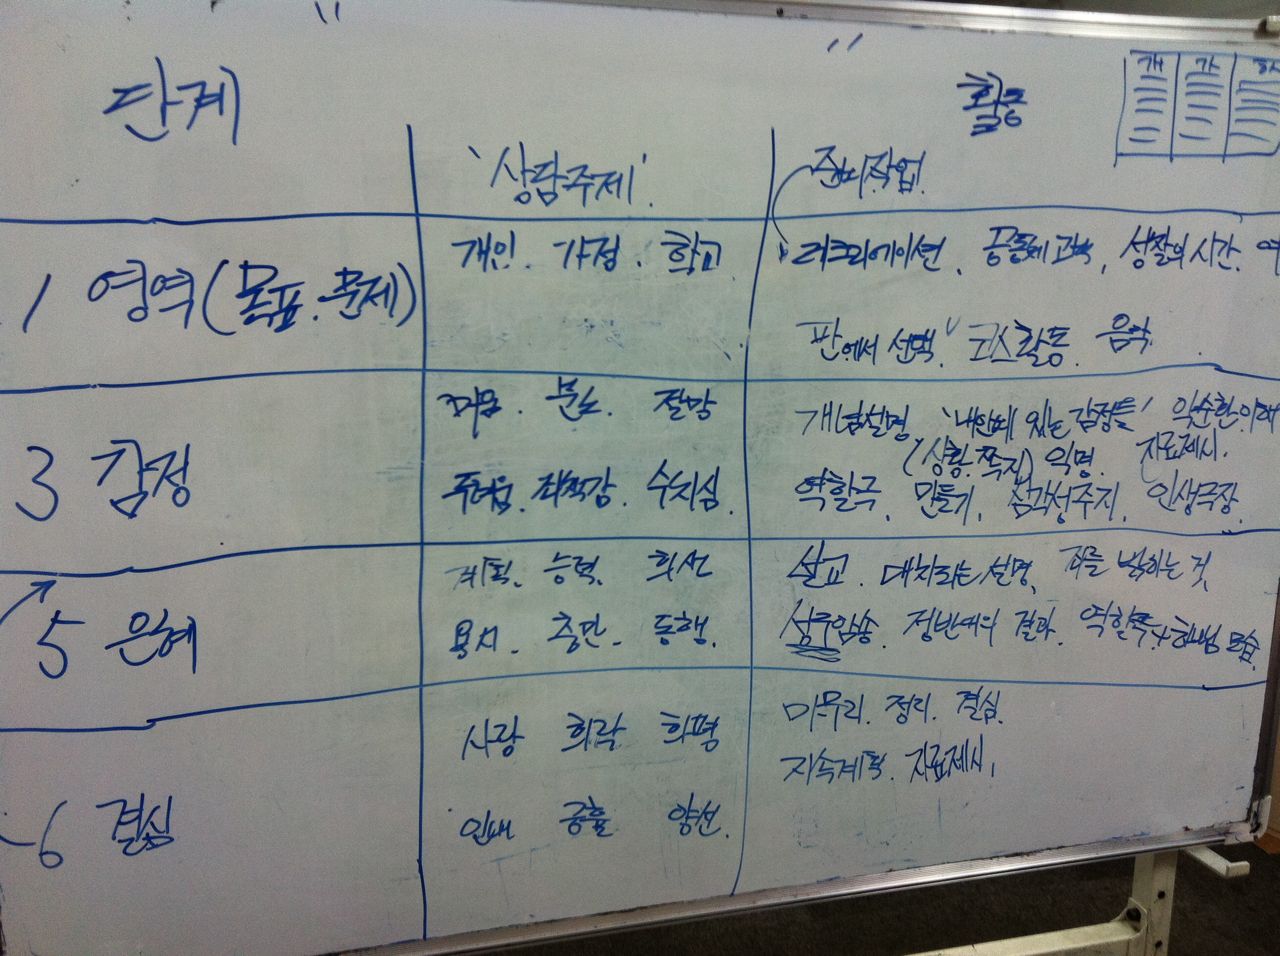 단계
활동
개 가 학
'상담주제'
준비작업
1 영역(목표.문제)
개인. 가정. 학교
레크리에이션, 공동체교육, 성찰의 시간.
판에서 선택" 코스활동. 음악.
3 감정
미움. 분노. 절망
두려움. 죄책감. 수치심.
개념설명, '내안에 있는 감정들' 악순환이해
(상황.쪽지) 익명. 자료제시.
역할극, 만들기, 심각성주지, 인생극장.
5 은혜
계획. 능력. 희선
용서. 충만. 동행.
설교. 대치되는 설명, 죄를 박하는 것,
암송. 정반대의 결과. 역할극+하나님 모습.
6 결심
사랑 희락 화평
인내 긍휼 양선.
마무리. 정리. 결심.
지속계획. 자료제시,